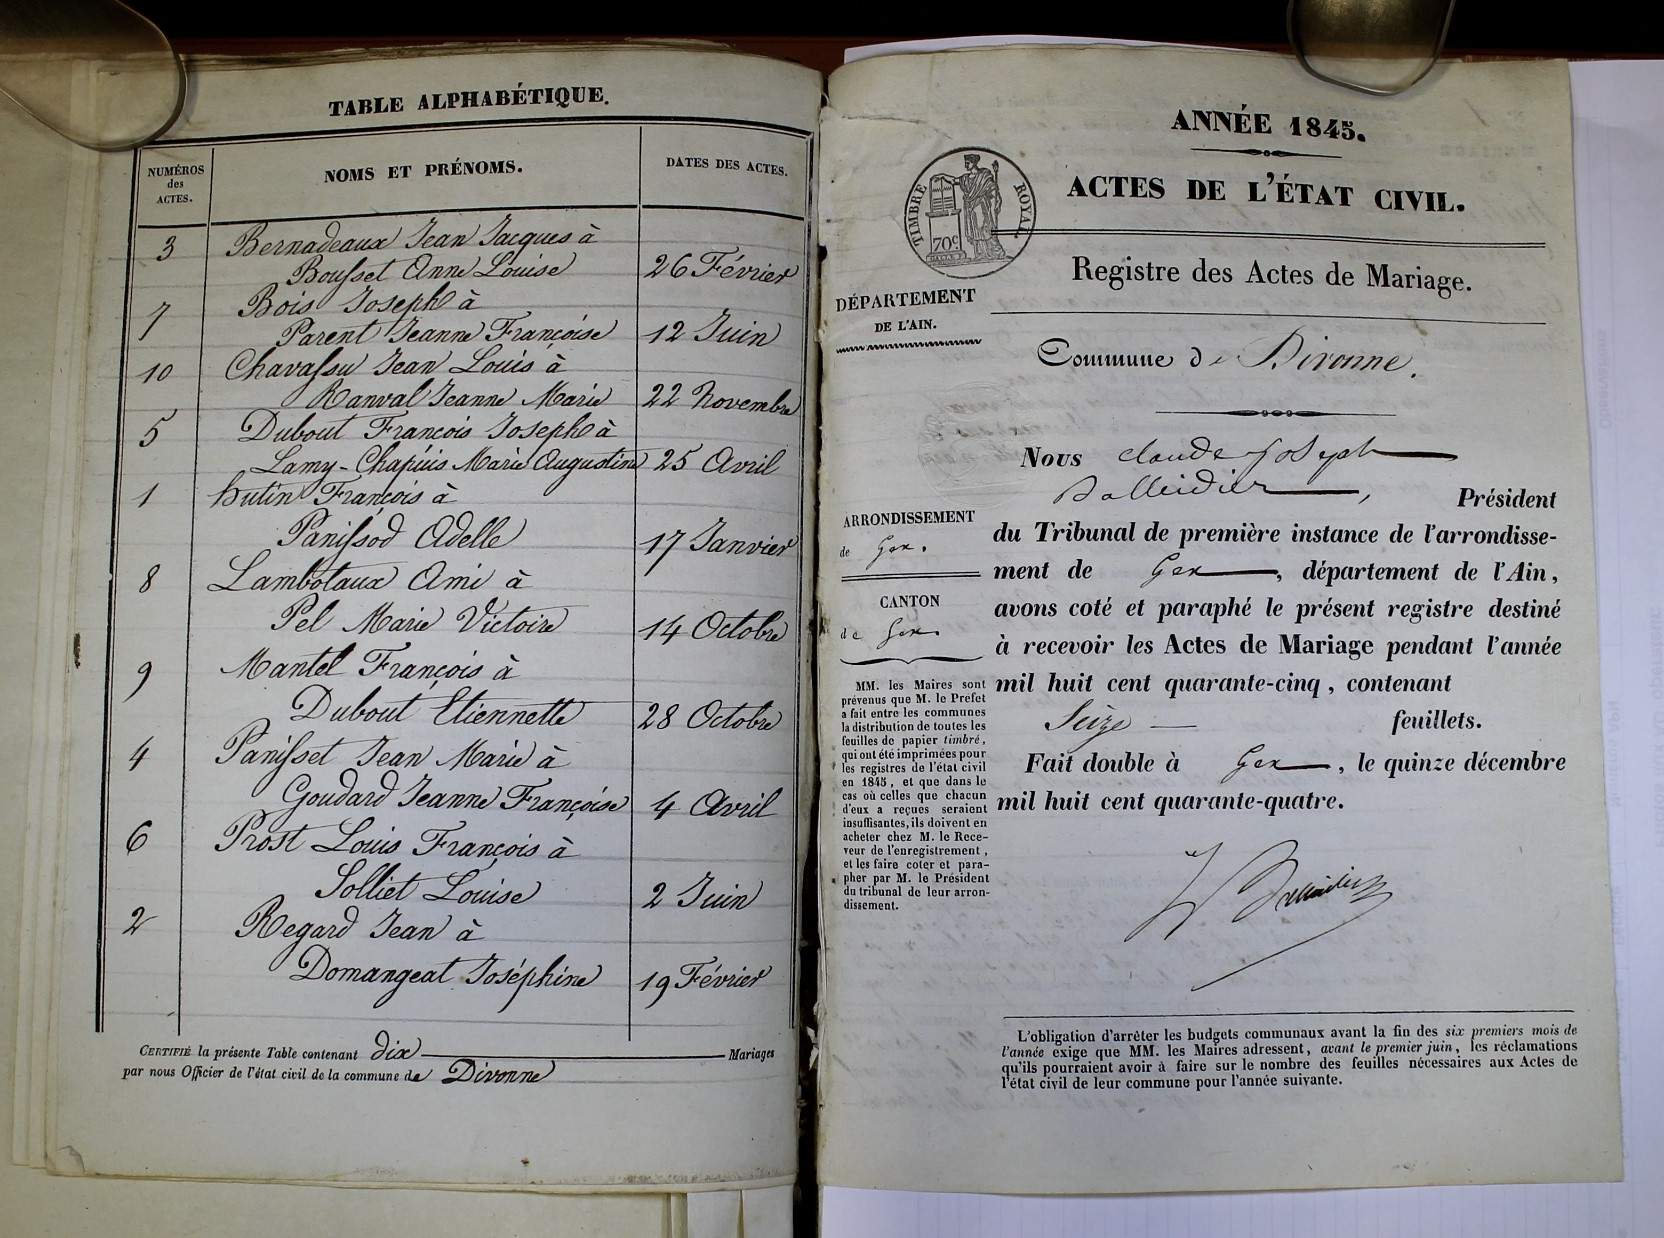 TABLE ALPHABÉTIQUE.
NUMÉROS des ACTES.
NOMS ET PRÉNOMS.
DATES DES ACTES.
3 Bernadeaux Jean Jacques à
Bousset Anne Louise 26 Février
7 Bois Joseph à
Parent Jeanne Françoise 12 Juin
10 Chavassu Jean Louis à
Ranval Jeanne Marie 22 Novembre
5 Dubout François Joseph à
Lamy-Chapuis Marie Augustine 25 Avril
1 hutin François à
Panissod Adelle 17 Janvier
8 Lambotaux Ami à
Pel Marie Victoire 14 Octobre
9 Mantel François à
Dubout Etiennette 28 Octobre
4 Panisset Jean Marie à
Goudard Jeanne Françoise 4 Avril
6 Prost Louis François à
Solliet Louise 2 Juin
2 Regard Jean à
Domangeat Joséphine 19 Février
CERTIFIÉ la présente Table contenant dix Mariages
par nous Officier de l'état civil de la commune de Divonne
ANNÉE 1845.
ACTES DE L'ÉTAT CIVIL.
TIMBRE ROYAL
70c
Registre des Actes de Mariage.
DÉPARTEMENT
DE L'AIN.
Commune de Divonne.
Nous Claude Joseph
Balleidier, Président
du Tribunal de première instance de l'arrondisse-
ment de Gex, département de l'Ain,
avons coté et paraphé le présent registre destiné
à recevoir les Actes de Mariage pendant l'année
mil huit cent quarante-cinq, contenant
Seize feuillets.
Fait double à Gex, le quinze décembre
mil huit cent quarante-quatre.
ARRONDISSEMENT
de Gex.
CANTON
de Gex.
MM. les Maires sont
prévenus que M. le Préfet
a fait entre les communes
la distribution de toutes les
feuilles de papier timbré,
qui ont été imprimées pour
les registres de l'état civil
en 1845, et que dans le
cas où celles que chacun
d'eux a reçues seraient
insuffisantes, ils doivent en
acheter chez M. le Rece-
veur de l'enregistrement,
et les faire coter et para-
pher par M. le Président
du tribunal de leur arron-
dissement.
L'obligation d'arrêter les budgets communaux avant la fin des six premiers mois de
l'année exige que MM. les Maires adressent, avant le premier juin, les réclamations
qu'ils pourraient avoir à faire sur le nombre des feuilles nécessaires aux Actes de
l'état civil de leur commune pour l'année suivante.